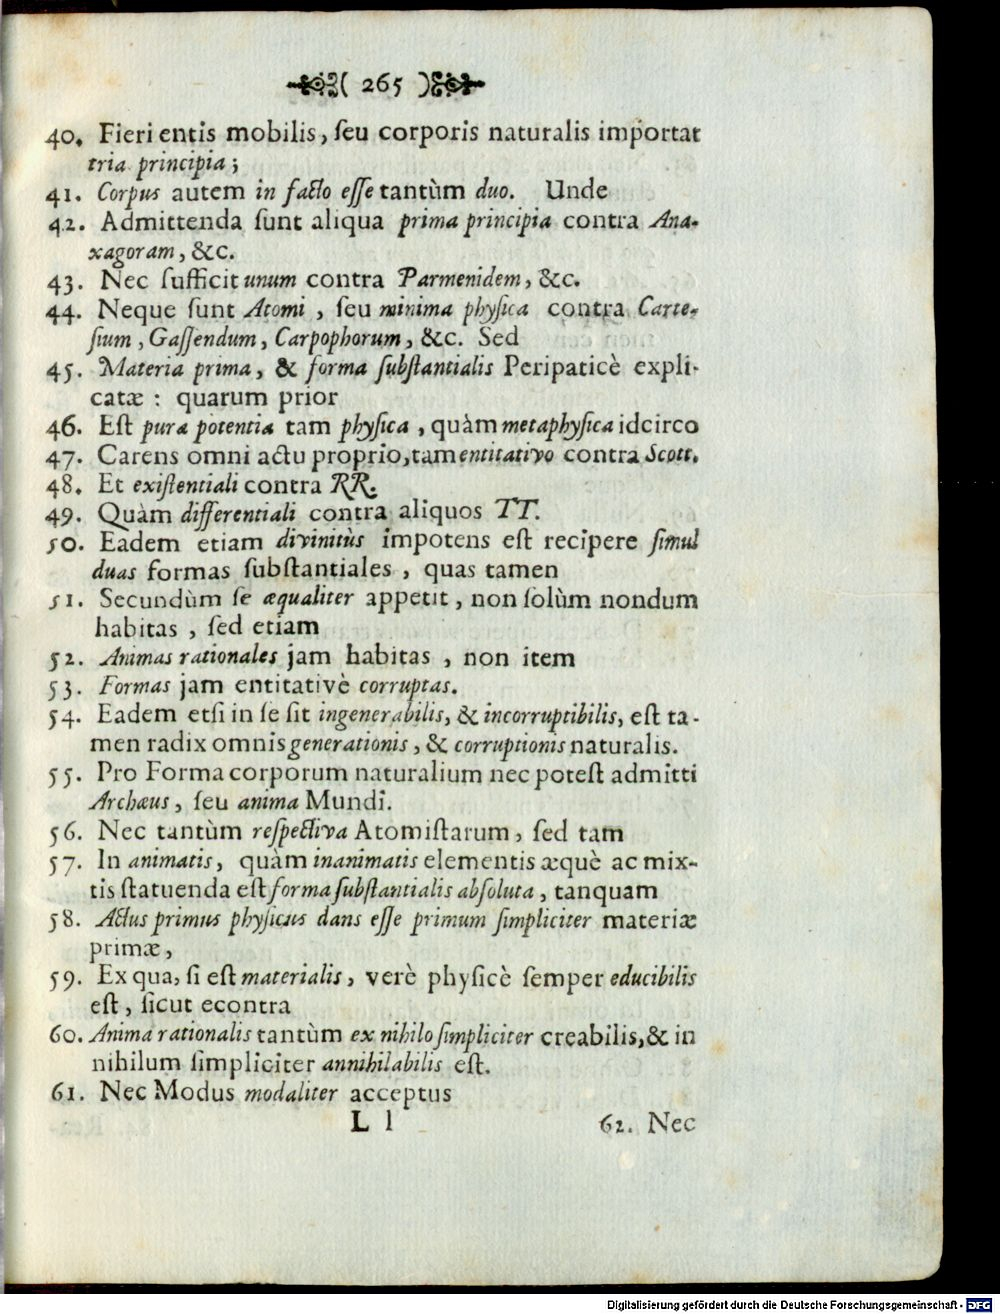 ( 265 )
40. Fieri entis mobilis, ſeu corporis naturalis importat
tria principia;
41. Corpus autem in facto eſſe tantùm duo. Unde
42. Admittenda ſunt aliqua prima principia contra Ana-
xagoram, &c.
43. Nec ſufficit unum contra Parmenidem, &c.
44. Neque ſunt Atomi, ſeu minima phyſica contra Carte-
ſium, Gaſſendum, Carpophorum, &c. Sed
45. Materia prima, & forma ſubſtantialis Peripaticè expli-
catæ: quarum prior
46. Eſt pura potentia tam phyſica, quàm metaphyſica idcirco
47. Carens omni actu proprio, tam entitativo contra Scott.
48. Et exiſtentiali contra RR.
49. Quàm differentiali contra aliquos TT.
50. Eadem etiam divinitùs impotens eſt recipere ſimul
duas formas ſubſtantiales, quas tamen
51. Secundùm ſe æqualiter appetit, non ſolùm nondum
habitas, ſed etiam
52. Animas rationales jam habitas, non item
53. Formas jam entitativè corruptas.
54. Eadem etſi in ſe ſit ingenerabilis, & incorruptibilis, eſt ta-
men radix omnis generationis, & corruptionis naturalis.
55. Pro Forma corporum naturalium nec poteſt admitti
Archæus, ſeu anima Mundi.
56. Nec tantùm reſpectiva Atomiſtarum, ſed tam
57. In animatis, quàm inanimatis elementis æquè ac mix-
tis ſtatuenda eſt forma ſubſtantialis abſoluta, tanquam
58. Actus primus phyſicus dans eſſe primum ſimpliciter materiæ
primæ,
59. Ex qua, ſi eſt materialis, verè phyſicè ſemper educibilis
eſt, ſicut econtra
60. Anima rationalis tantùm ex nihilo ſimpliciter creabilis, & in
nihilum ſimpliciter annihilabilis eſt.
61. Nec Modus modaliter acceptus
L l 62. Nec
Digitalisierung gefördert durch die Deutsche Forschungsgemeinschaft - DFG